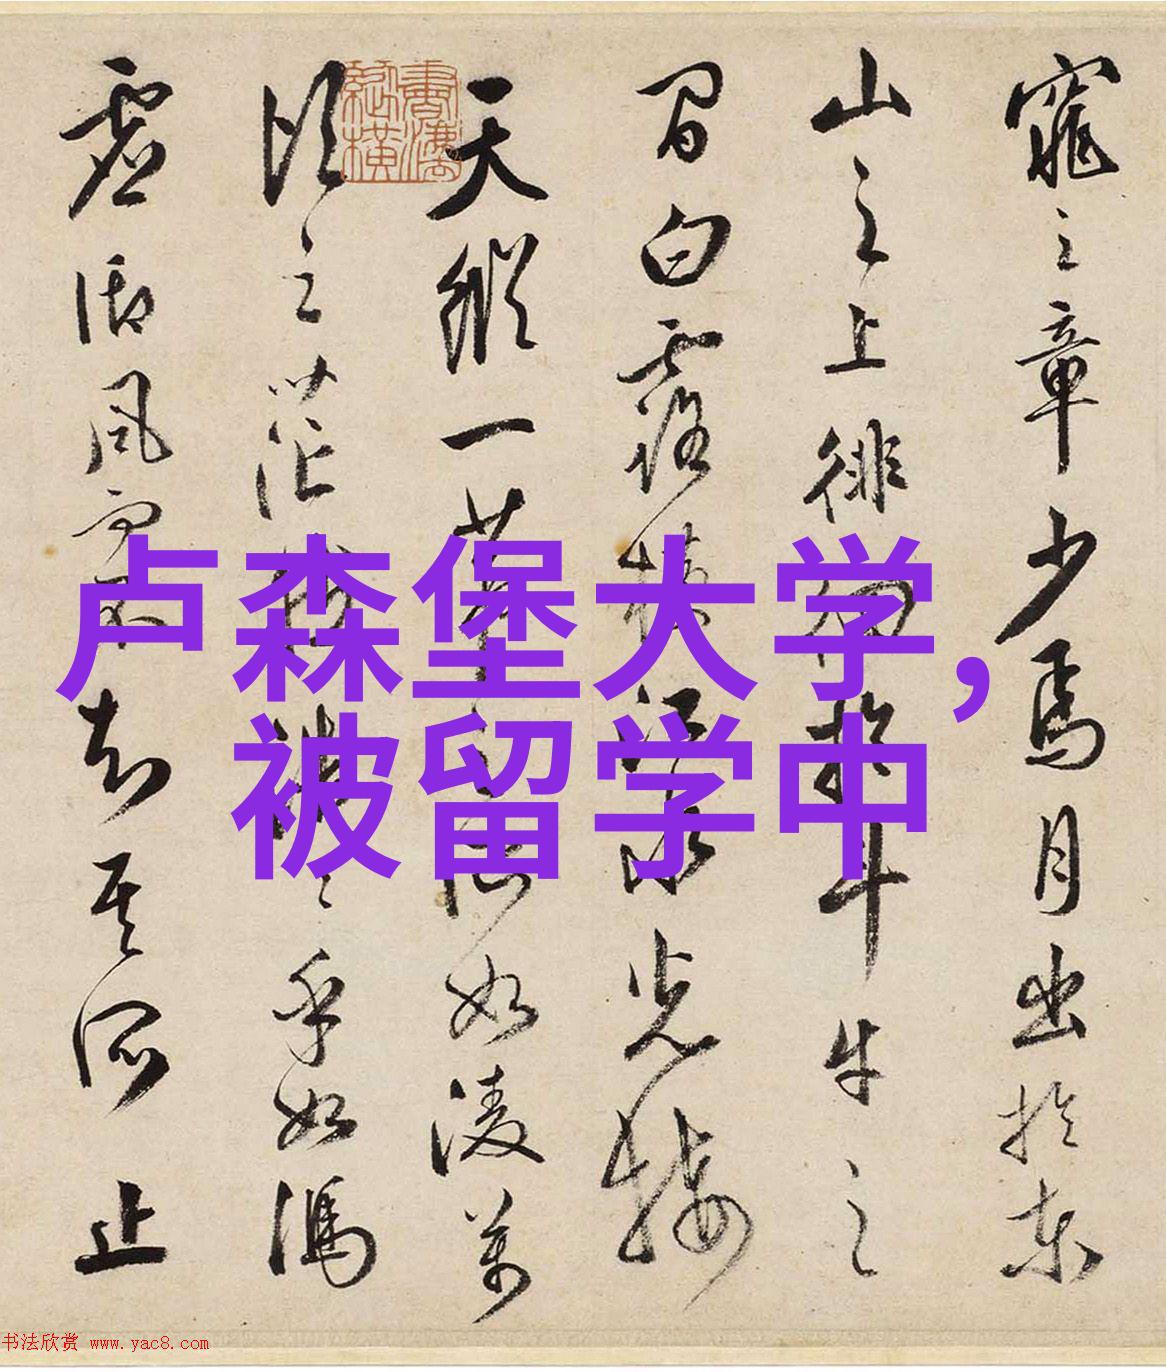 窕之章少焉月出於東
山之上徘徊於斗牛之
間白露橫江水光接
天縱一葦之所如凌萬
頃之茫然浩〻乎如馮
虛御風而不知其所止
卢森堡大学,
被留学中
书法欣赏 www.yac8.com